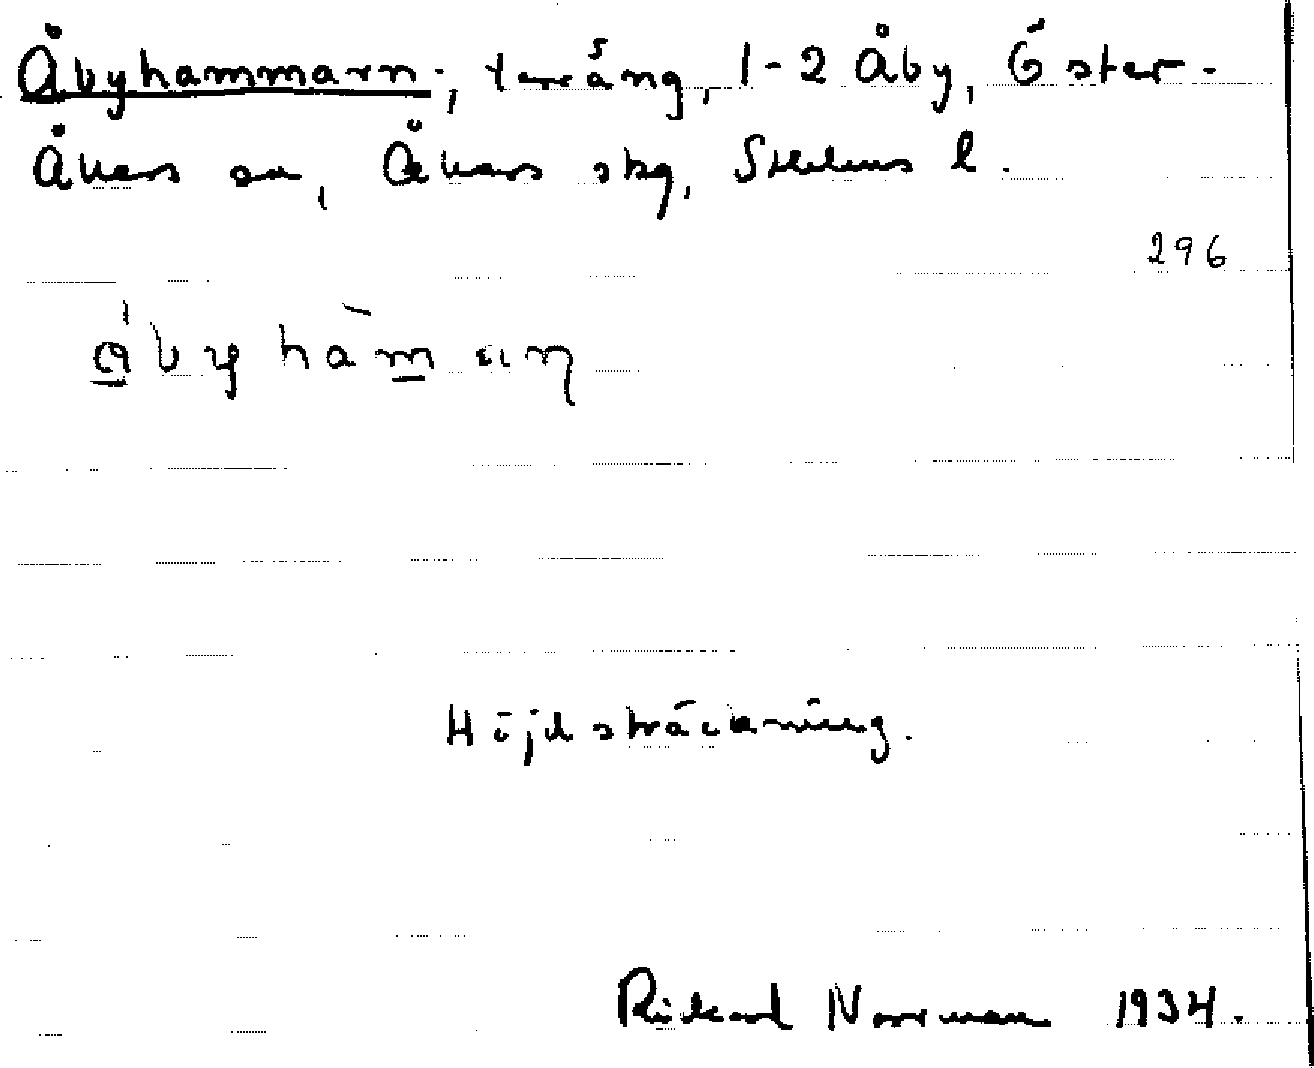 Åbyhammarn, terräng, 1-2 Åby, Öster-
Åkers sn, Åkers skg, Sthlms l.
296
Höjdsträckning.
Rikard Norrman 1934.